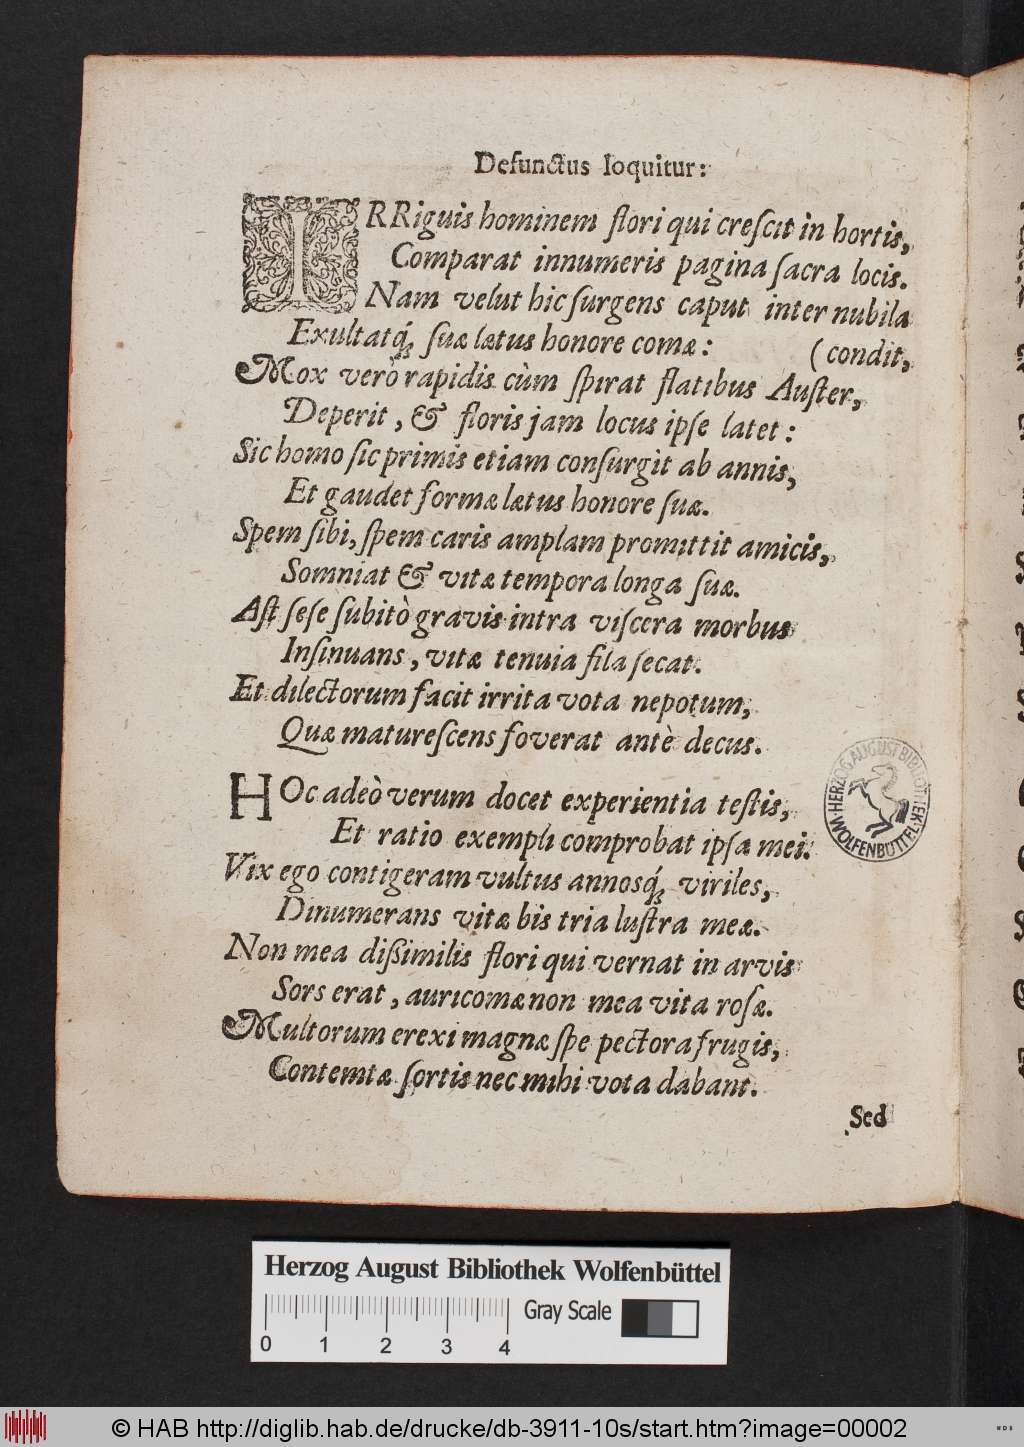 Defunctus loquitur:
IRRiguis hominem flori qui creſcit in hortis,
Comparat innumeris pagina ſacra locis.
Nam velut hic ſurgens caput inter nubila
Exultatq́; ſuæ lætus honore comæ: (condit,
Mox verò rapidis cùm ſpirat flatibus Auſter,
Deperit, & floris jam locus ipſe latet:
Sic homo ſic primis etiam conſurgit ab annis,
Et gaudet formæ lætus honore ſuæ.
Spem ſibi, ſpem caris amplam promittit amicis,
Somniat & vitæ tempora longa ſuæ.
Aſt ſeſe ſubitò gravis intra viſcera morbus
Inſinuans, vitæ tenuia fila ſecat.
Et dilectorum facit irrita vota nepotum,
Quæ matureſcens foverat antè decus.
HOc adeò verum docet experientia teſtis,
Et ratio exempli comprobat ipſa mei.
Vix ego contigeram vultus annosq́; viriles,
Dinumerans vitæ bis tria luſtra meæ.
Non mea diſſimilis flori qui vernat in arvis
Sors erat, auricomæ non mea vita roſæ.
Multorum erexi magnæ ſpe pectora frugis,
Contemtæ ſortis nec mihi vota dabant.
Sed
HERZOG AUGUST BIBLIOTHEK
WOLFENBÜTTEL
Herzog August Bibliothek Wolfenbüttel
0 1 2 3 4 Gray Scale
© HAB http://diglib.hab.de/drucke/db-3911-10s/start.htm?image=00002